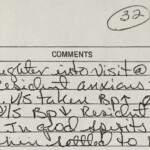 32
COMMENTS
ughter into visit @
resident anxious
V/S taken BP↑ a
V/S BP↓ Resident
In good spirits
hen settled to